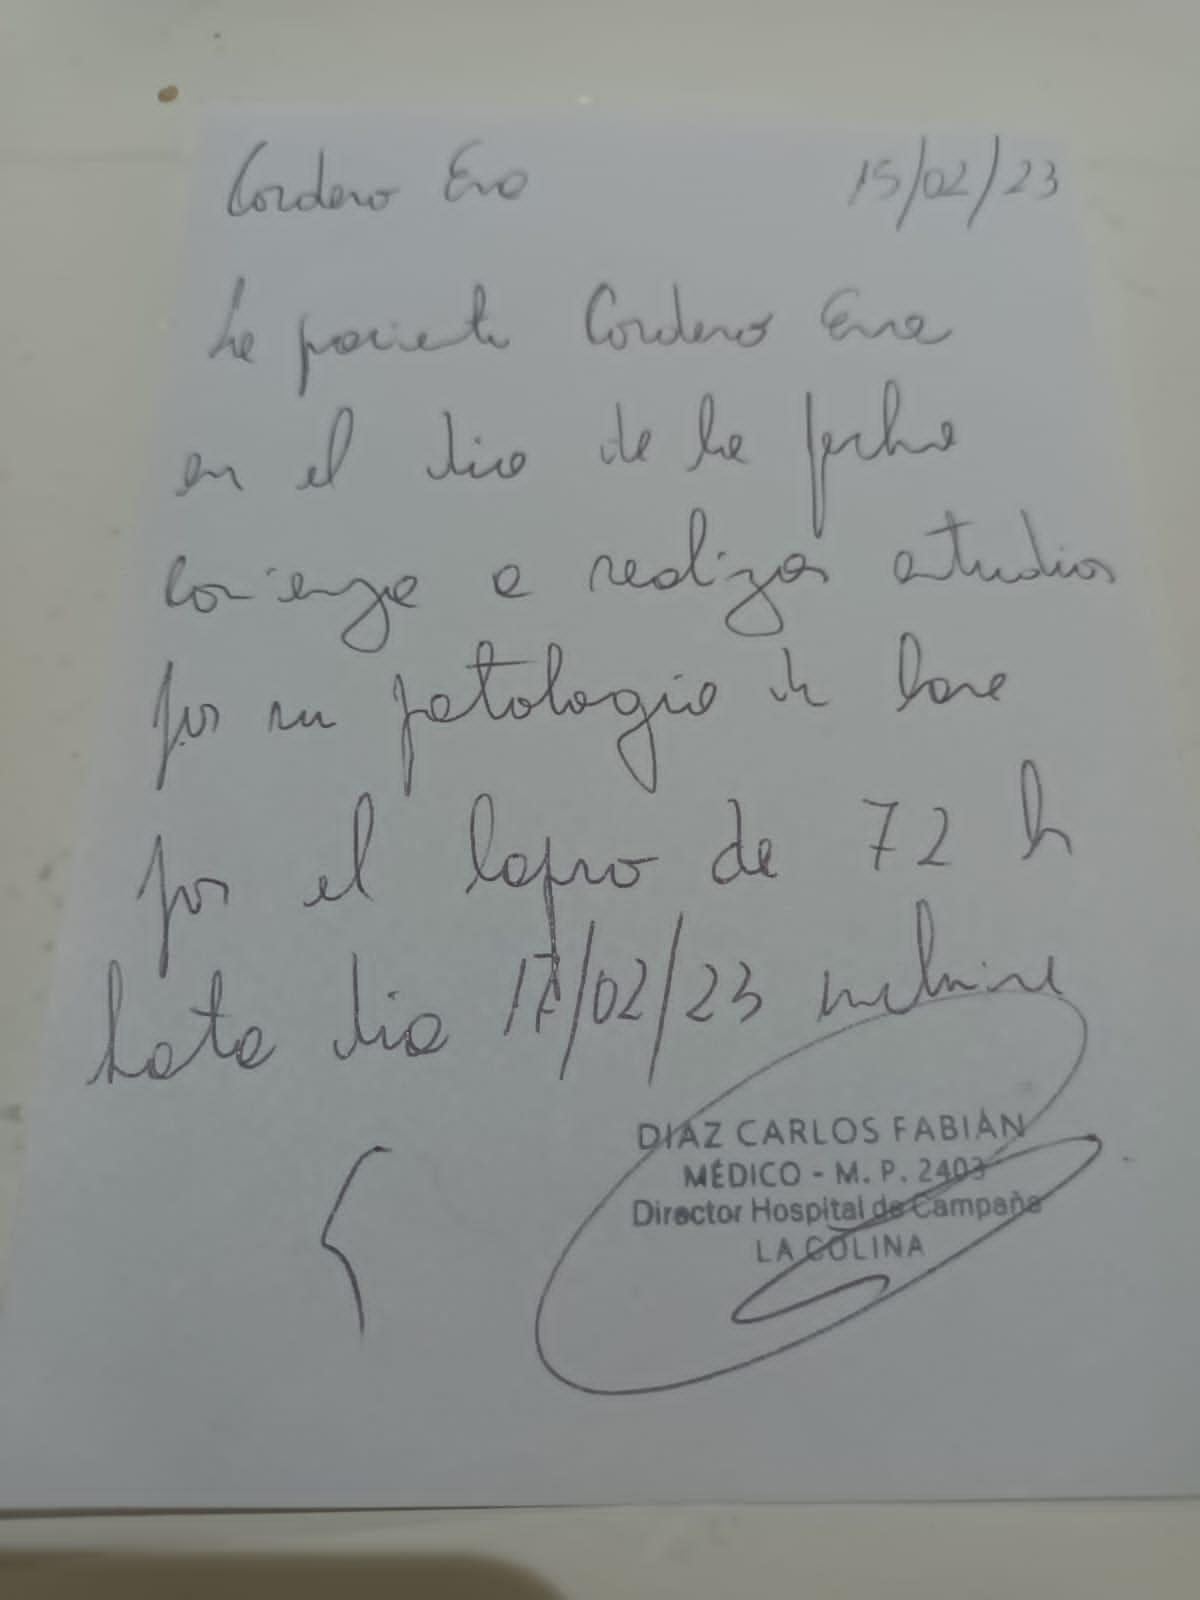 Cordero Eva 15/02/23
La paciente Cordero Eva
en el dia de la fecha
comienza a realizar estudios
por su patologia de base
por el lapso de 72 h
hasta dia 17/02/23 inclusive
DIAZ CARLOS FABIÁN
MÉDICO - M. P. 2403
Director Hospital de Campaña
LA COLINA